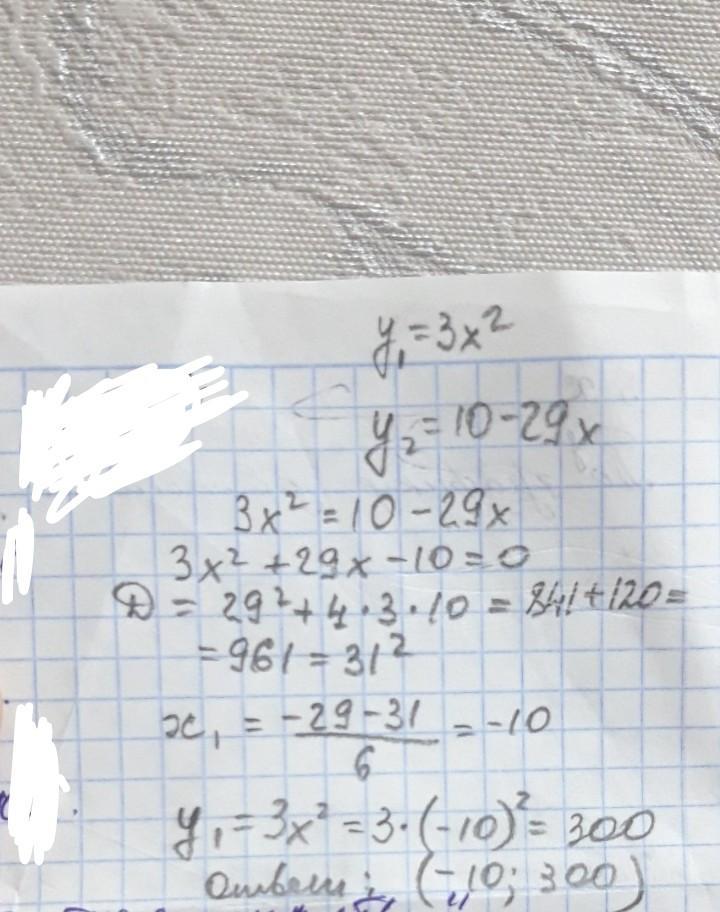 y₁=3x²
y₂=10-29x
3x²=10-29x
3x²+29x-10=0
D=29²+4·3·10=841+120=
=961=31²
x₁=(-29-31)/6=-10
y₁=3x²=3·(-10)²=300
Ответ: (-10; 300)